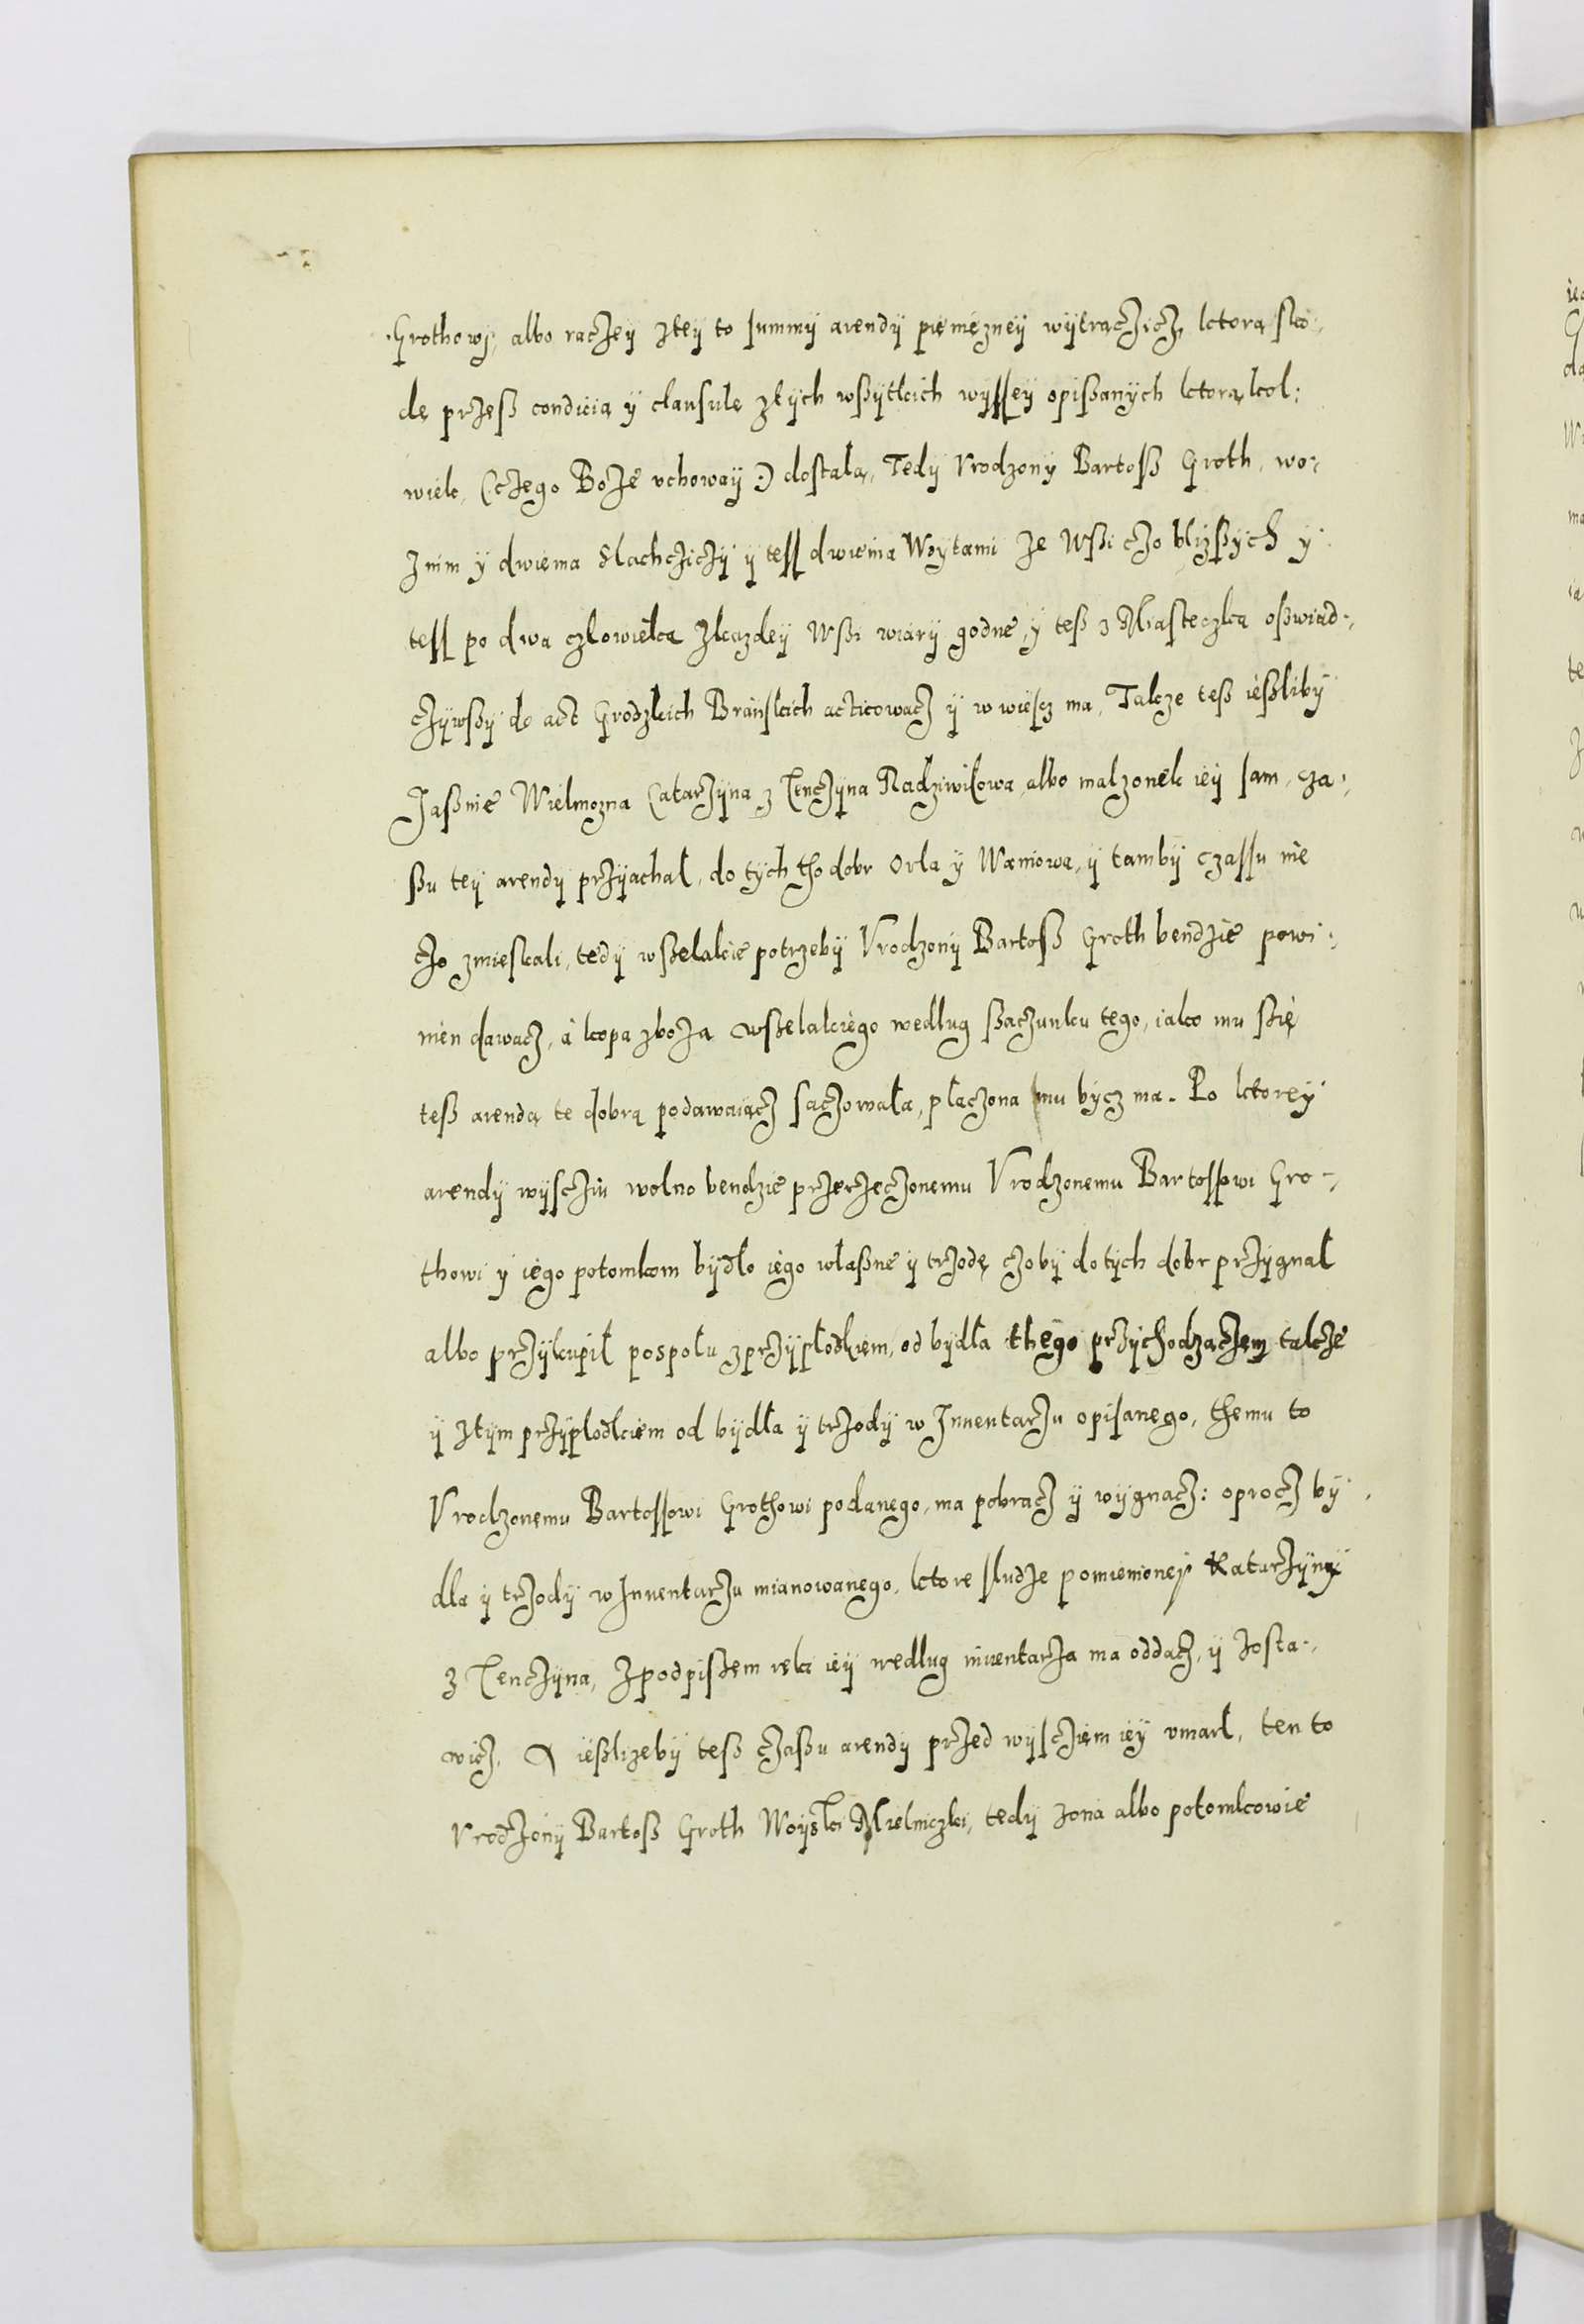 Grothowj, albo raczey ztey to summÿ arendÿ pięniężneÿ wÿtraczicz, ktora sko:,
dę przess condicią ÿ clausulę ztÿch wssÿtkich wÿsseÿ opissanÿch ktorąkol:
wiek, (czego Boże uchowaÿ:) dostała, Tedÿ Urodzonÿ Bartoss Groth, wo:,
znim ÿ dwiema Slachcziczÿ ÿ tess dwiema Woytami ze Wssi czo blizssÿch ÿ
tess po dwa człowieka zkazdeÿ Wssi wiarÿ godne, ÿ tess z Miasteczka osswiad:,
czÿwssÿ do act Grodzkich Brańskich acticowacz ÿ w wiescz ma, Takze tess iessliby
Jassnie Wielmozna Catarzÿna z Tenczÿna Radziwiłowa, albo malzonek ieÿ sam, cza:,
ssu teÿ arendÿ przÿachał, do tÿch tho dobr Orla ÿ Waniowa, ÿ tambÿ czassu nie
czo zmieskali, tedÿ wsselakie potrzebÿ Urodzonÿ Bartoss Groth bendzie powi:,
nien dawacz, à kopa zboża wsselakiego według ssaczunku tego, iako mu ssię
tess arendą te dobrą podawaiącz saczowała, płaczona mu bÿcz ma. Po ktoreÿ
arendÿ wÿscziu wolno bendzie przerzeczonemu Urodzonemu Bartossowi Gro:,
thowi ÿ iego potomkom bÿdło iego własne ÿ trzodę czobÿ do tÿch dobr przÿgnał
albo przÿkupił pospołu zprzÿpłodkiem, od bydła thego przÿchodzączem takze
ÿ ztÿm przÿplodkiem od bÿdła ÿ trzodÿ w Inuentarzu opisanego, themu to
Urodzonemu Bartossowi Grothowi podanego, ma pobracz ÿ wÿgnacz: oprocz bÿ
dła ÿ trzodÿ w Inuentarzu mianowanego, ktore sludze pomienioneÿ Katarzÿnÿ
z Tenczÿna, zpodpissem ręki ieÿ według inuentarza ma oddacz, ÿ zosta:,
wicz. A iesslizebÿ tess czassu arendÿ przed wÿscziem ieÿ umarł, ten to
Urodzonÿ Bartoss Groth Woÿski Mielniczki, tedÿ zona albo potomkowie